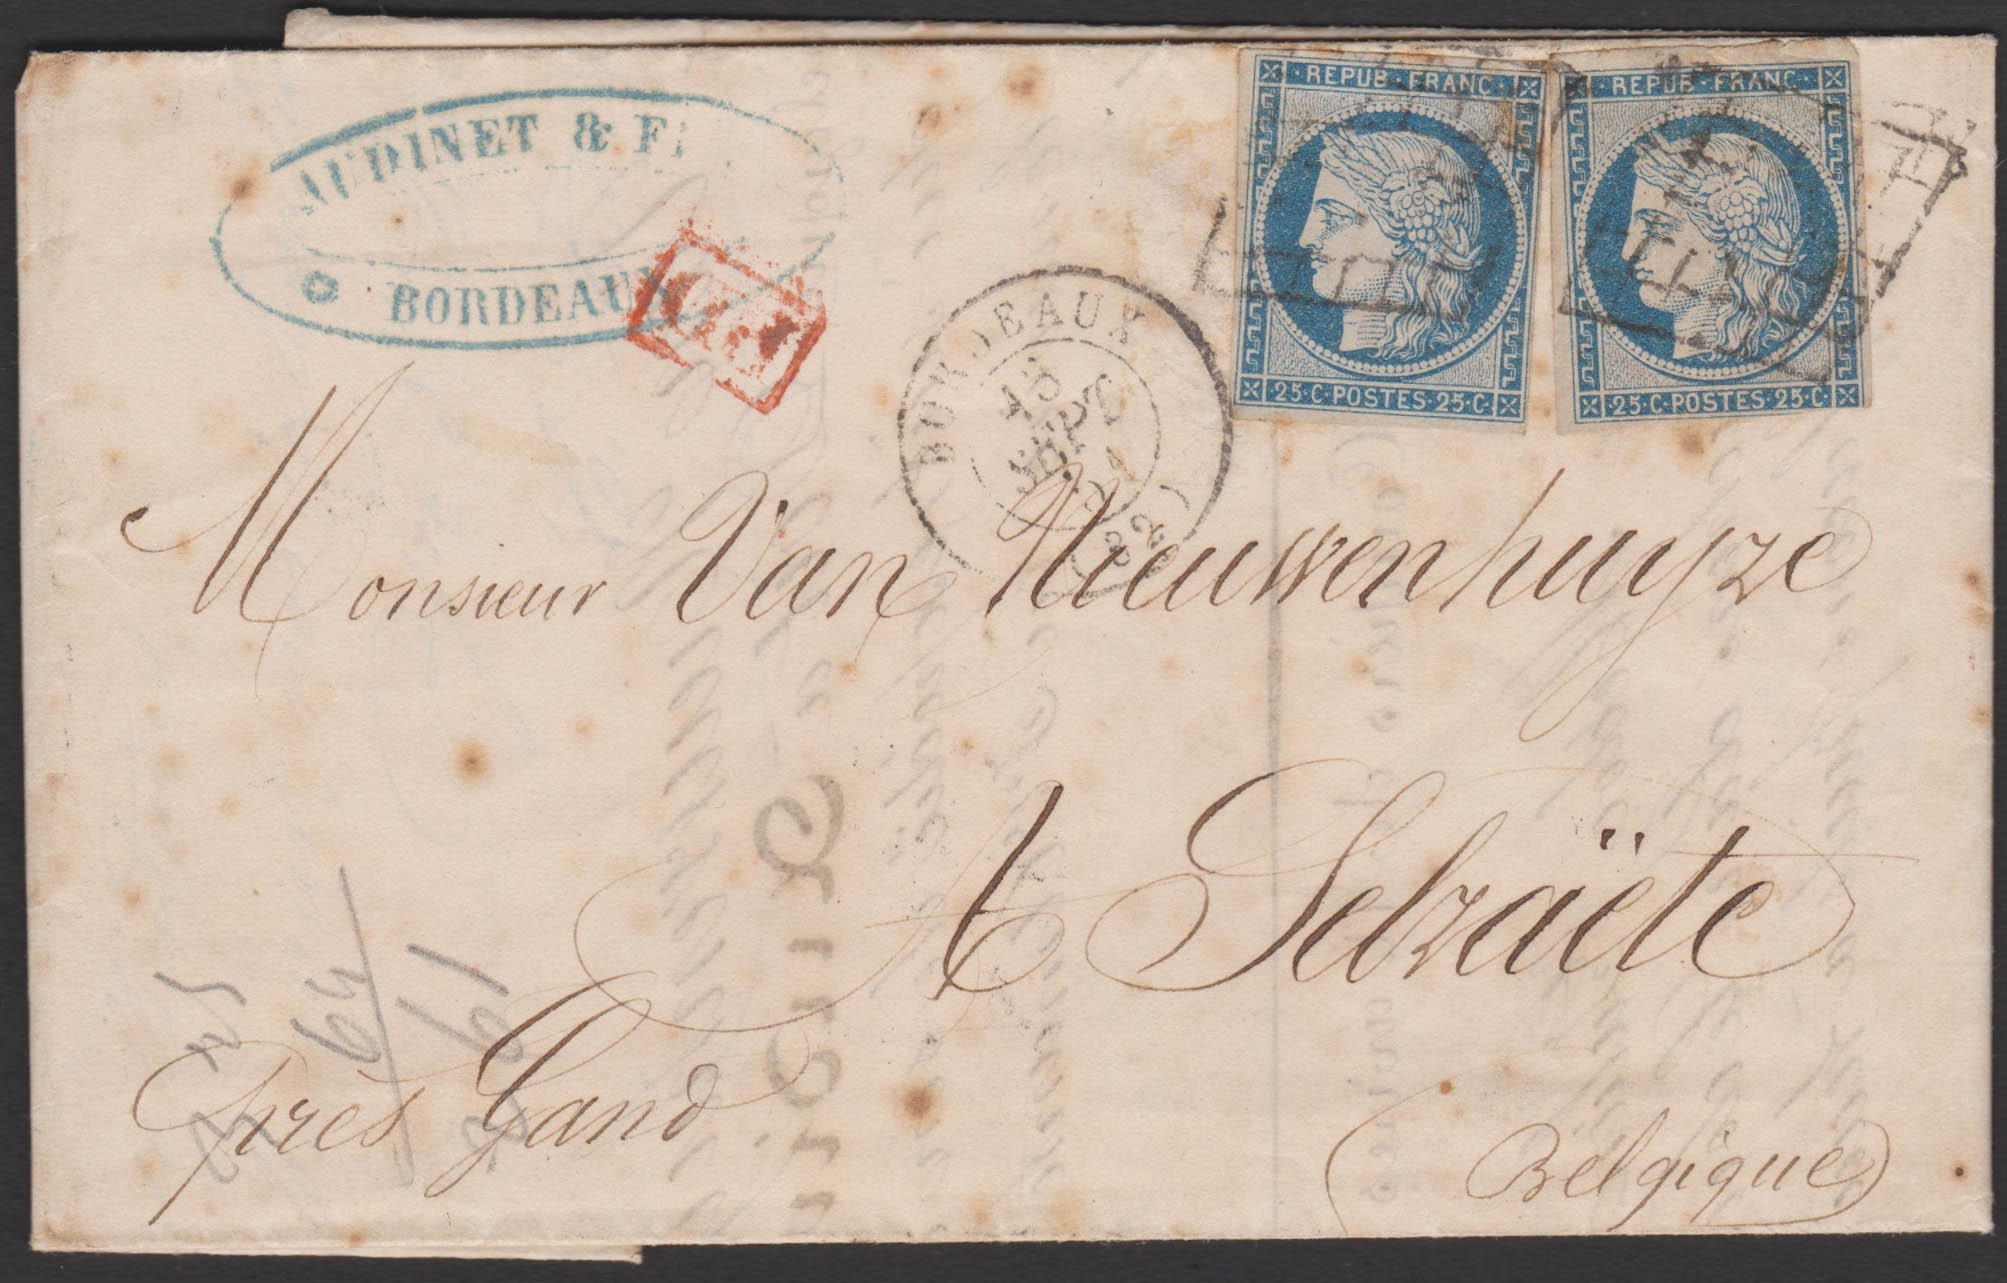 REPUB·FRANC·
REPUB·FRANC·
AUDINET & F
BORDEAUX
BORDEAUX
SEPT
(32)
25·C·POSTES·25·C·
25·C·POSTES·25·C·
Monsieur Van Nieuwenhuyze
A Selzaëte
près Gand
(Belgique)